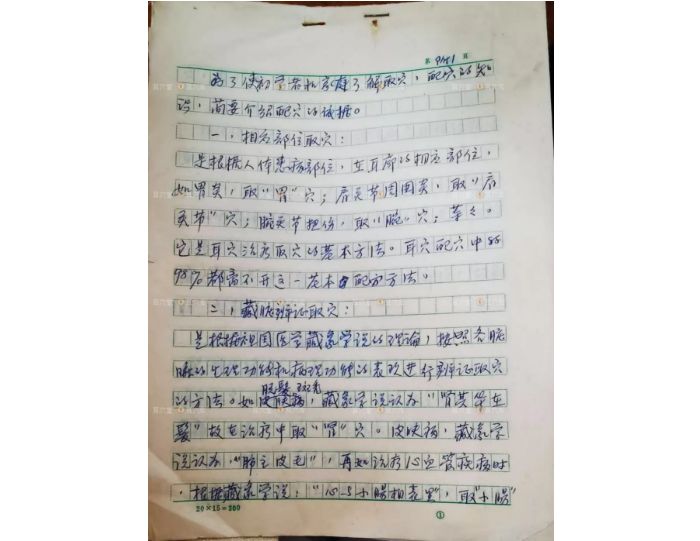 第 9151 页
为了使初学者和家庭了解取穴，配穴的知
识，简要介绍配穴的依据。
一，相应部位取穴：
是根据人体患病部位，在耳廓的相应部位，
如胃炎，取“胃”穴；肩关节周围炎，取“肩
关节”穴；腕关节扭伤，取“腕”穴；等々。
它是耳穴治疗取穴的基本方法。耳穴配穴中
98%都离不开这一基本配方方法。
二，藏脏辨证取穴：
是根据祖国医学藏象学说的理论，按照各脏
腑的生理功能和病理功能的表现进行辨证取穴
脱髪 斑秃
的方法。如，藏象学说认为“肾其华在
髪”故在治疗中取“肾”穴。皮肤病，藏象学
说认为，“肺主皮毛”，再如治疗心血管疾病时
，根据藏象学说，“心与小肠相表里”，取“小肠”
20×15=300
①